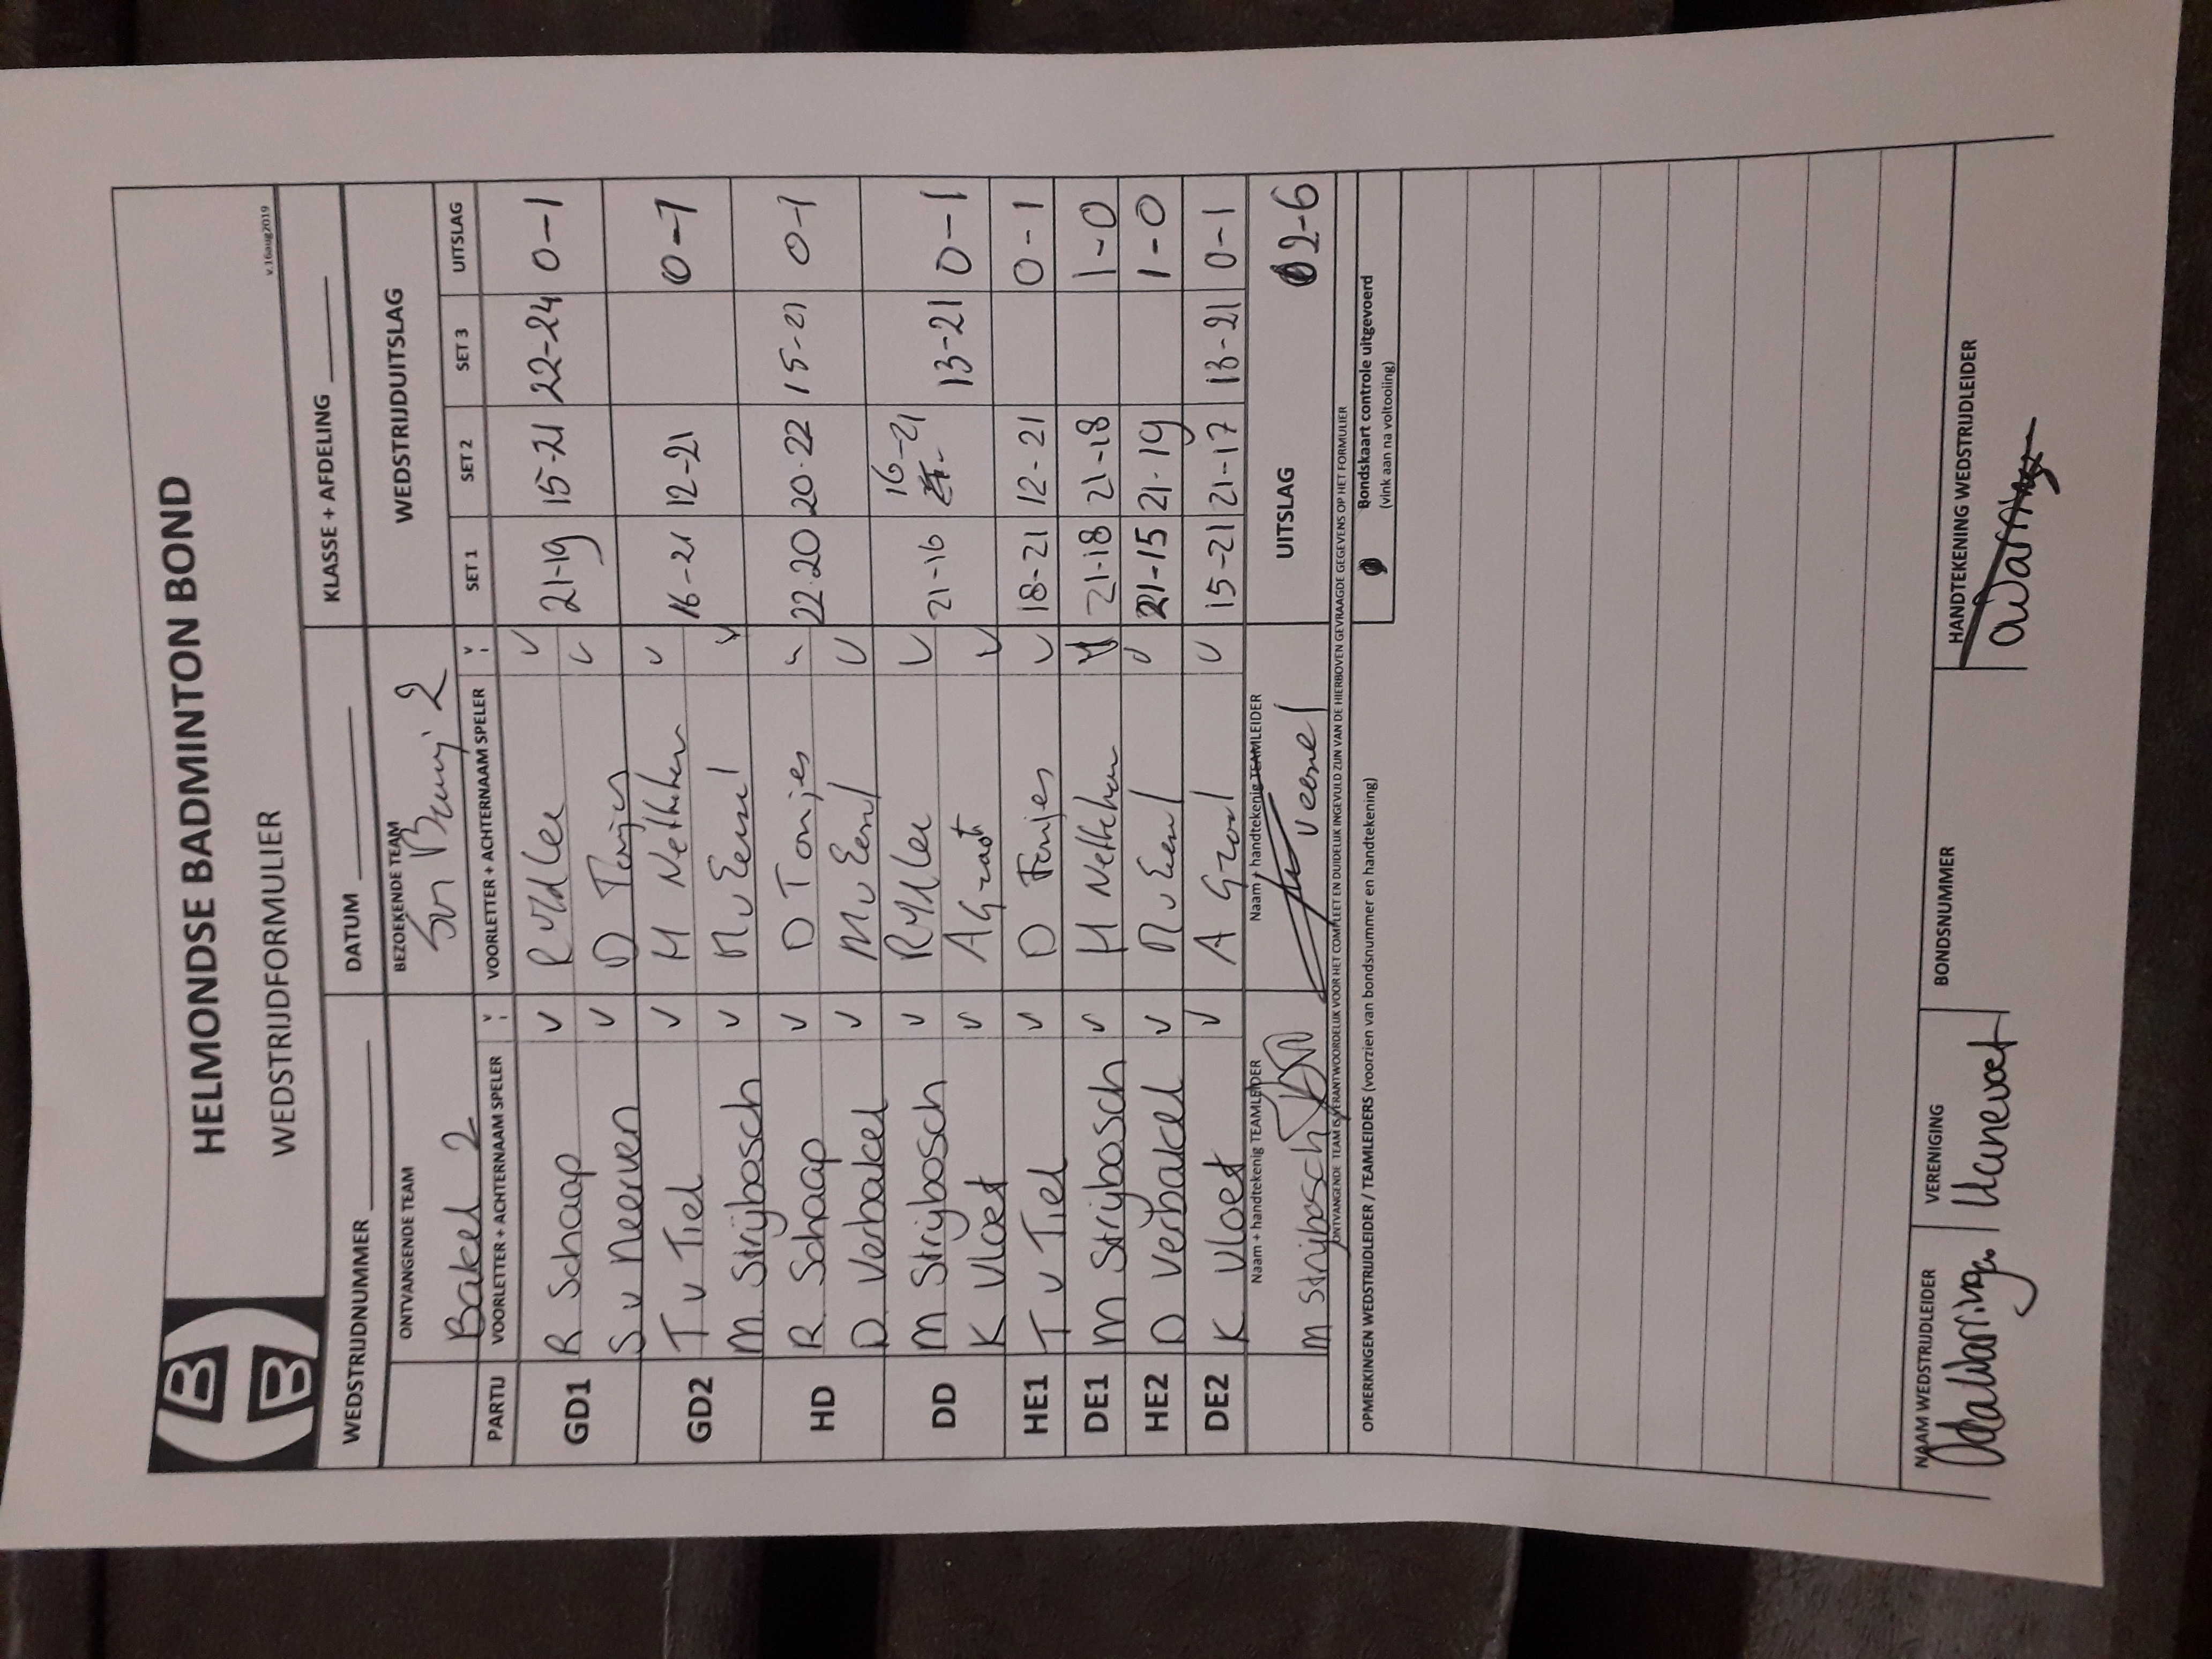 HELMONDSE BADMINTON BOND
WEDSTRIJDFORMULIER
v.16aug2019
WEDSTRIJDNUMMER DATUM KLASSE + AFDELING
ONTVANGENDE TEAM BEZOEKENDE TEAM WEDSTRIJDUITSLAG
Bakel 2 2
PARTIJ VOORLETTER + ACHTERNAAM SPELER V VOORLETTER + ACHTERNAAM SPELER V SET 1 SET 2 SET 3 UITSLAG
GD1 R Schaap v v 21-19 15-21 22-24 0-1
S v Neerven v D v
GD2 T v Tiel v H v 16-21 12-21 0-1
M. Strijbosch v M v Eersel v
HD R. Schaap v D Tonjes v 22-20 20-22 15-21 0-1
D. Verbakel v M v Eersel v
DD M Strijbosch v v 21-16 16-21 13-21 0-1
K Vloet v A Graat v
HE1 T v Tiel v D Tonjes v 18-21 12-21 0-1
DE1 M Strijbosch v H 21-18 21-18 1-0
HE2 D Verbakel v M v Eersel v 21-15 21-19 1-0
DE2 K Vloet v A v 15-21 21-17 13-21 0-1
Naam + handtekenig TEAMLEIDER Naam + handtekenig TEAMLEIDER UITSLAG 2-6
M Strijbosch v Eersel
ONTVANGENDE TEAM IS VERANTWOORDELIJK VOOR HET COMPLEET EN DUIDELIJK INGEVULD ZIJN VAN DE HIERBOVEN GEVRAAGDE GEGEVENS OP HET FORMULIER
OPMERKINGEN WEDSTRIJDLEIDER / TEAMLEIDERS (voorzien van bondsnummer en handtekening)
Bondskaart controle uitgevoerd
(vink aan na voltooiing)
NAAM WEDSTRIJDLEIDER VERENIGING BONDSNUMMER HANDTEKENING WEDSTRIJDLEIDER